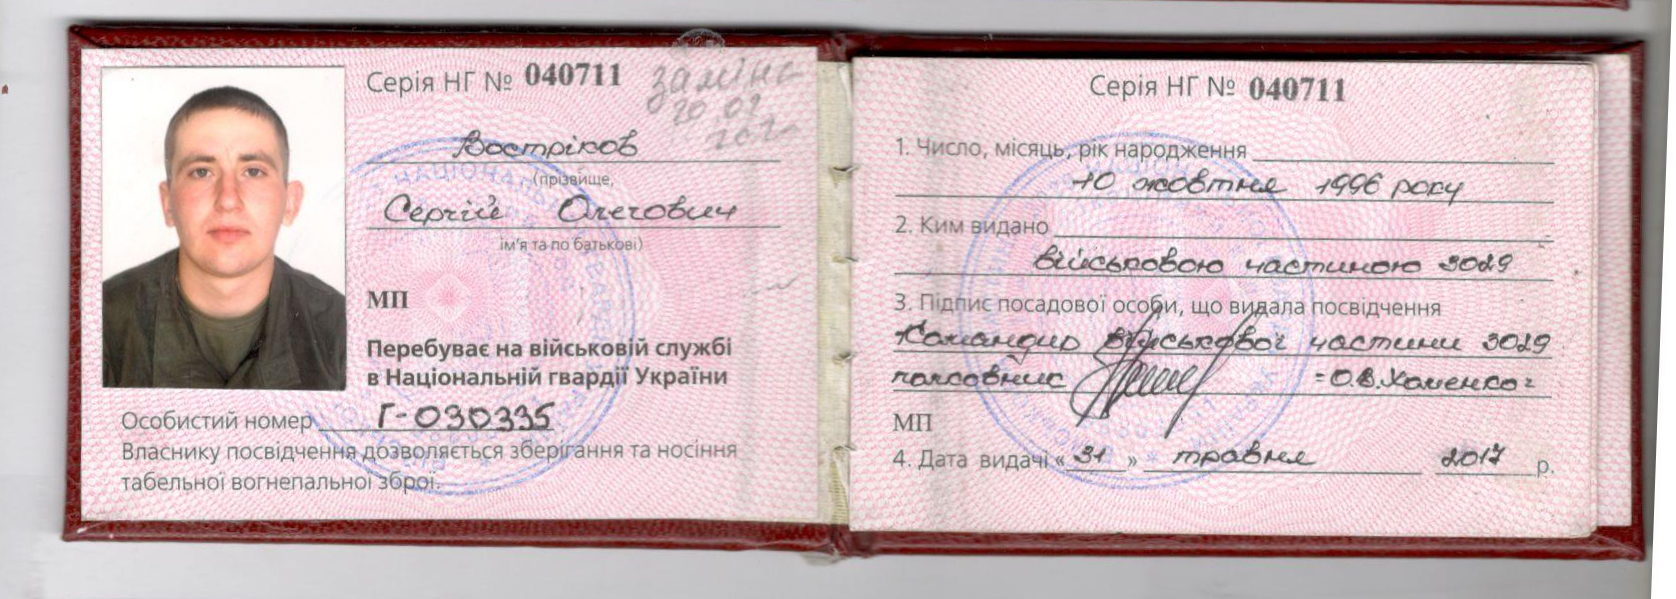 Серія НГ № 040711
заміна
Востріков
(прізвище,
Сергій Олегович
ім'я та по батькові)
МП
Перебуває на військовій службі
в Національній гвардії України
Особистий номер Г-030335
Власнику посвідчення дозволяється зберігання та носіння
табельної вогнепальної зброї.
Серія НГ № 040711
1. Число, місяць, рік народження
10 жовтня 1996 року
2. Ким видано
військовою частиною 3029
3. Підпис посадової особи, що видала посвідчення
Командир військової частини 3029
полковник =О.В.Хоменко=
МП
4. Дата видачі «31» травня 2017 р.